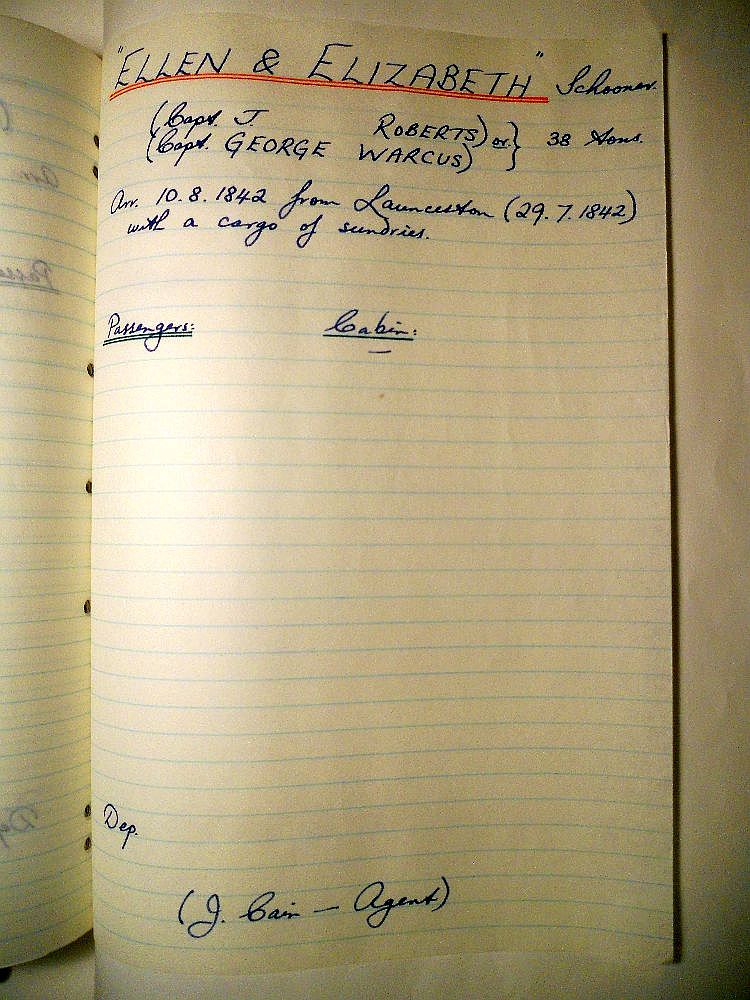 "ELLEN & ELIZABETH" Schooner.
(Capt. J ROBERTS) or } 38 tons.
(Capt. GEORGE WARCUS)
Arr. 10.8.1842 from Launceston (29.7.1842)
with a cargo of sundries.
Passengers: Cabin:
—
Dep.
(J. Cain — Agent)